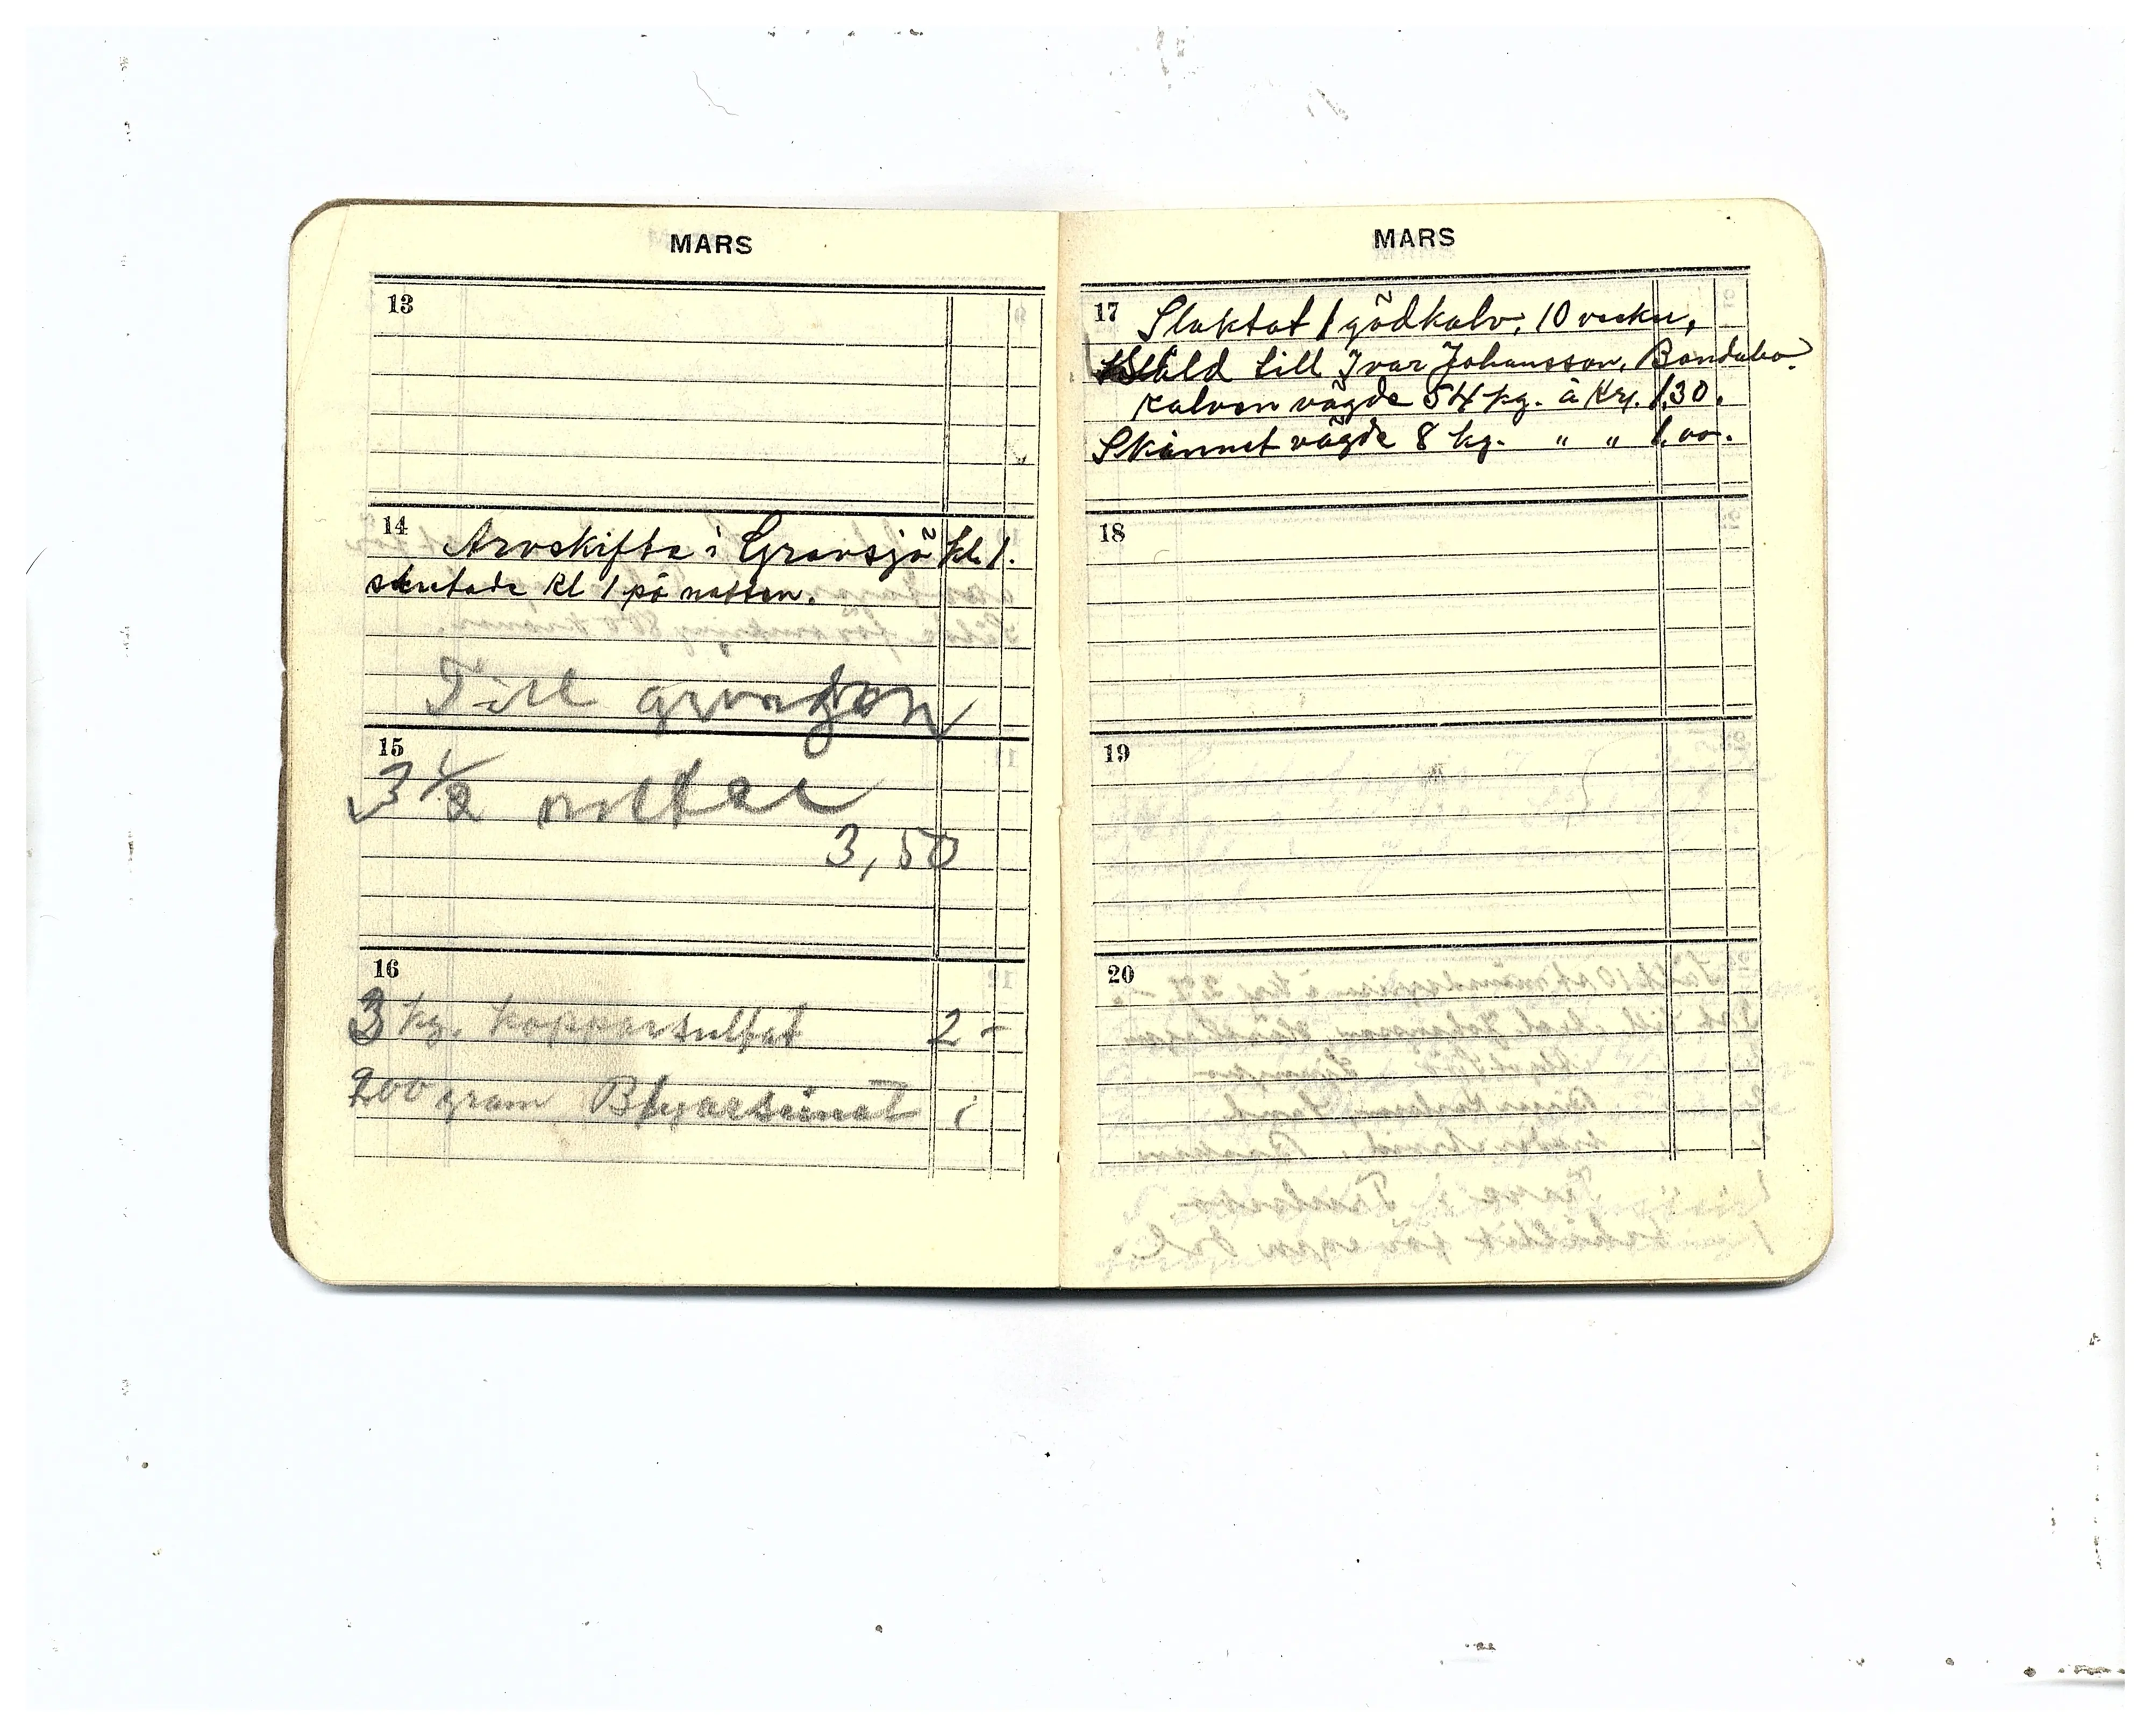 MARS
13
14 Arvskifte i Gransjö kl. 1.
slutade kl 1 på natten.
Till
15
3 1/2
3,50
16
3 kg. kopparsulfat 2 -
200 gram Blyarsenat
MARS
17 Slaktat 1 gödkalv, 10 veckor,
Såld till Ivar Johansson, Bondabo.
Kalven vägde 54 kg. à Kr. 1,30.
Skinnet vägde 8 kg. " " 1.00.
18
19
20